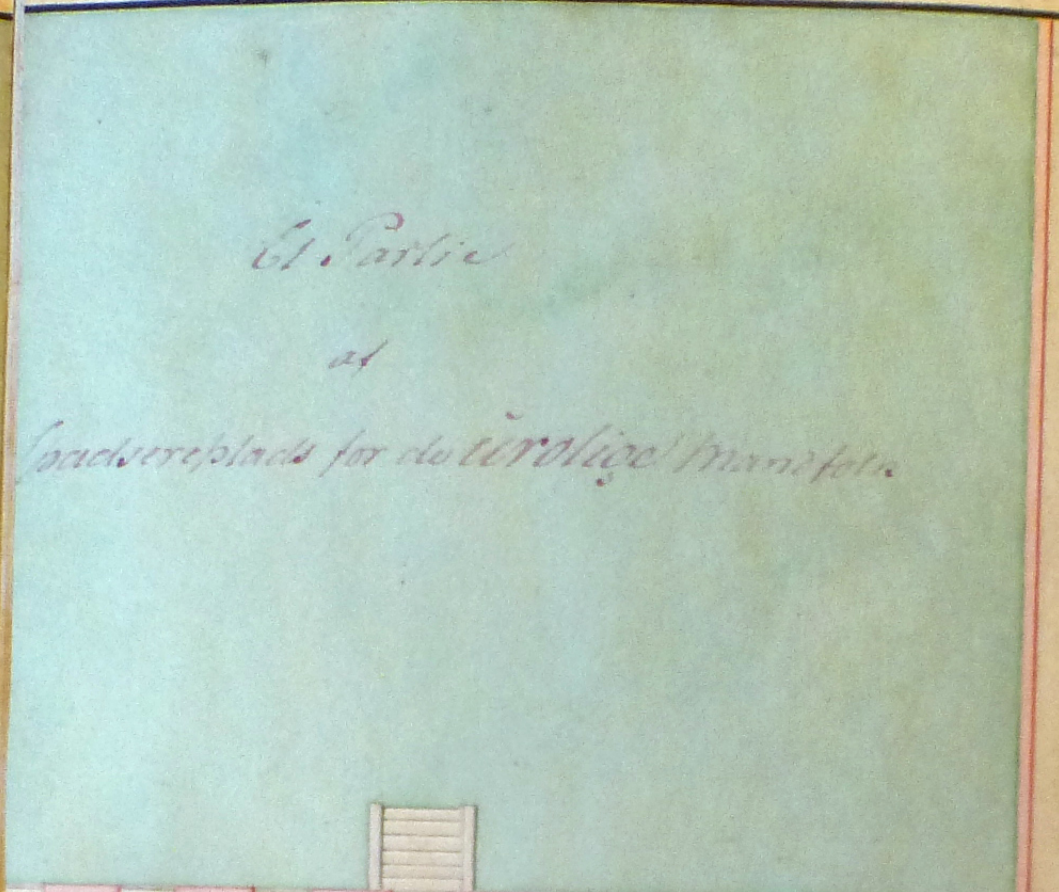 Et Partie
af
Spadsereplads for de ürolige Mandfolk